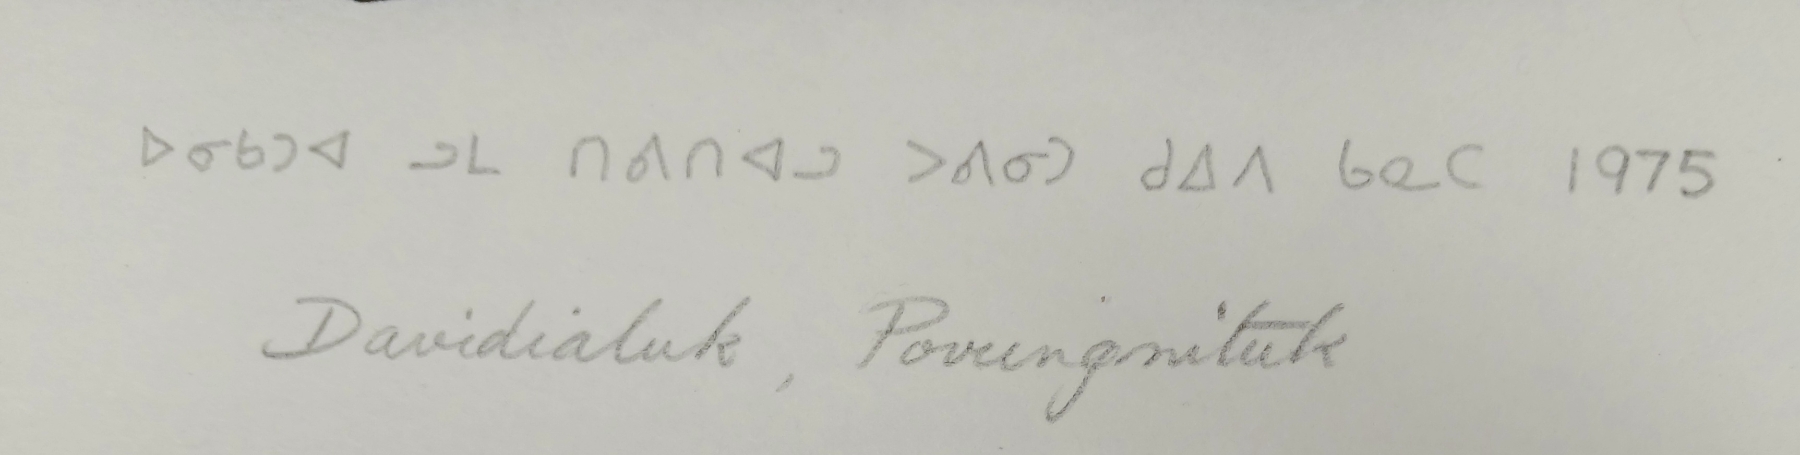 ᐅᓂᑲᑐᐊ ᓗᒪ ᑎᕕᑎᐊᓗ ᐳᕕᓂᑐ ᑯᐃᐱ ᑲᓇᑕ 1975
Davidialuk, Povungnituk